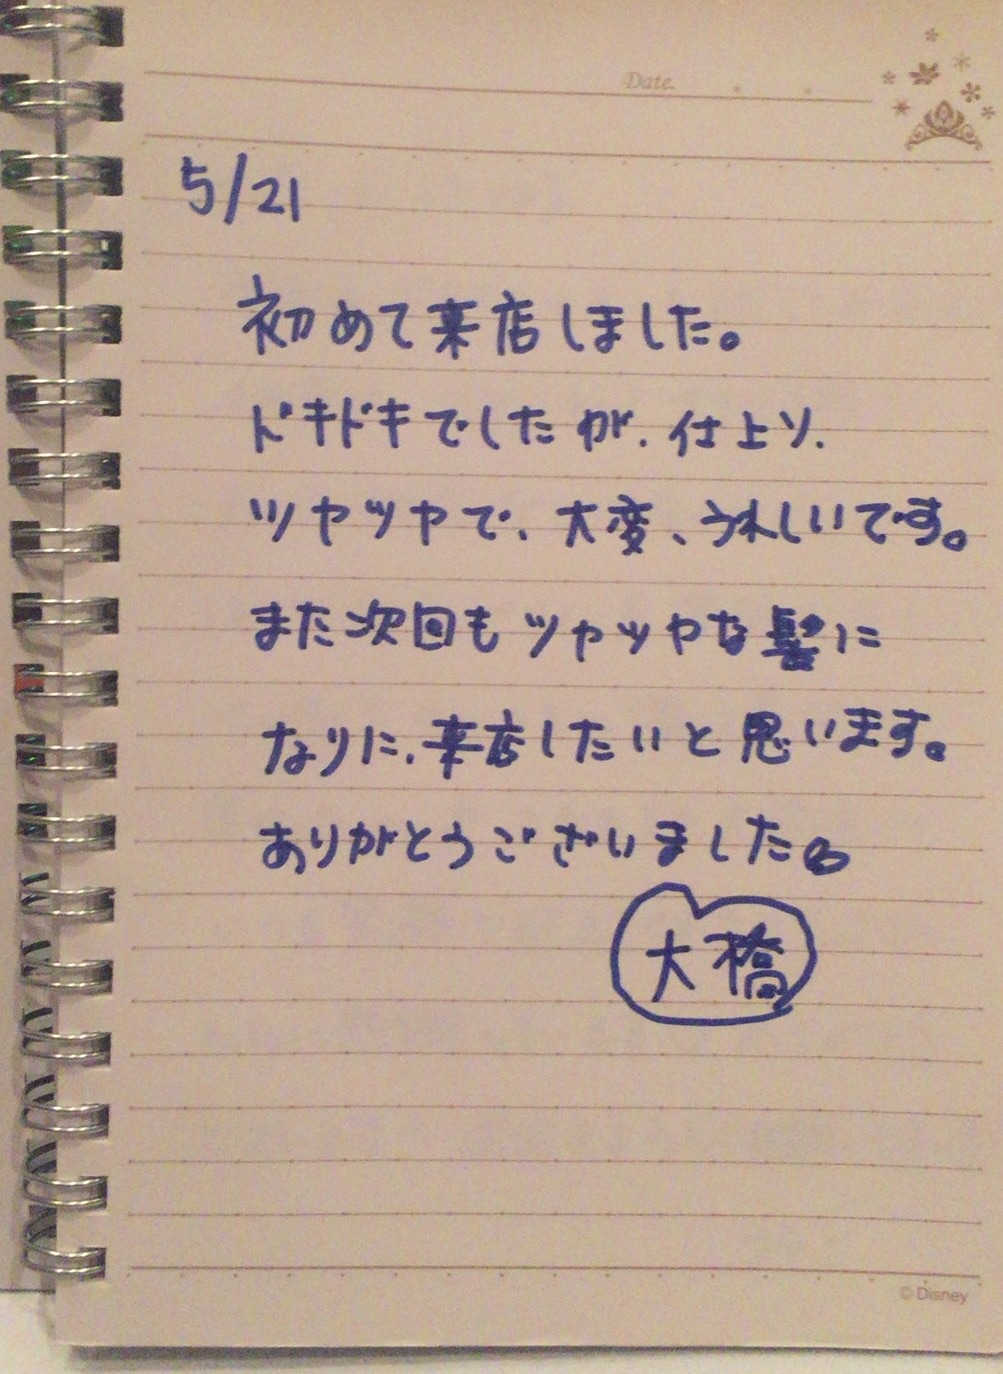 Date.
5/21
初めて来店しました。
ドキドキでしたが、仕上り、
ツヤツヤで、大変、うれしいです。
また次回もツヤツヤな髪に
なりに、来店したいと思います。
ありがとうございました。
大橋
© Disney